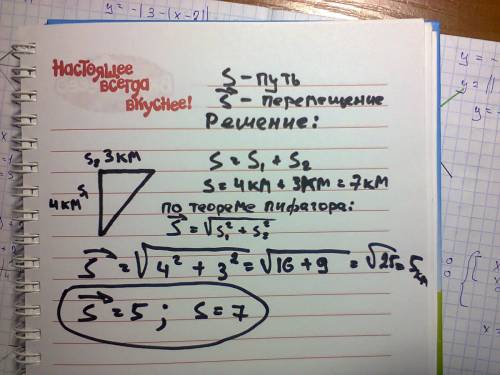 y = -|3-(x-2)|
Настоящее
всегда
вкуснее!
S - путь
S⃗ - перемещение
Решение:
S₂ 3 км
S₁
4 км
S = S₁ + S₂
S = 4 км + 3 км = 7 км
по теореме пифагора:
S⃗ = √S₁² + S₂²
S⃗ = √4² + 3² = √16 + 9 = √25 = 5 км
S⃗ = 5 ; S = 7